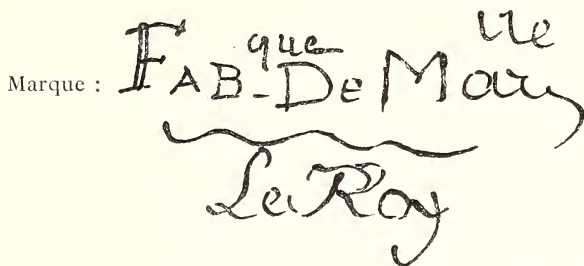 Marque : FAB-que De Marlle
Le Roy